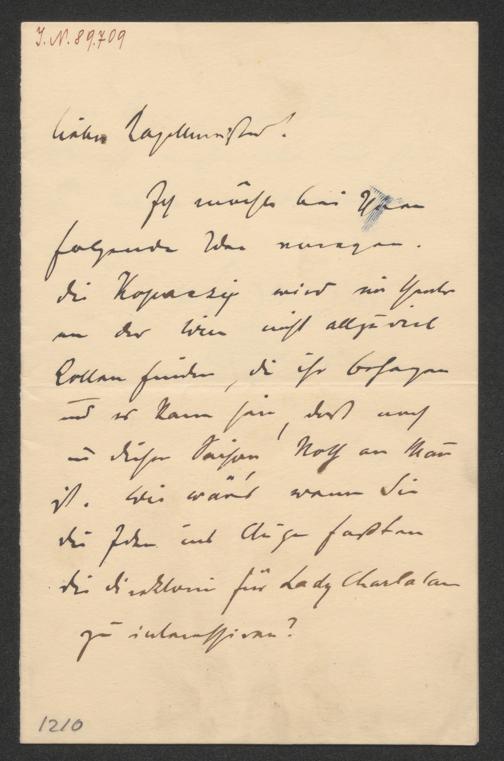 I.N. 89.709
Lieber Kapellmeister!
Ich möchte bei Ihnen
folgende Idee anregen.
Die Kopacsy wird im Theater
an der Wien nicht allzuviel
Rollen finden, die ihr behagen
und es kann sein, daß noch
in dieser Saison Noth an Mann
ist. Wie wär's wenn Sie
die Idee ins Auge faßten
die Direktorin für Lady Charlatan
zu interessiren?
1210